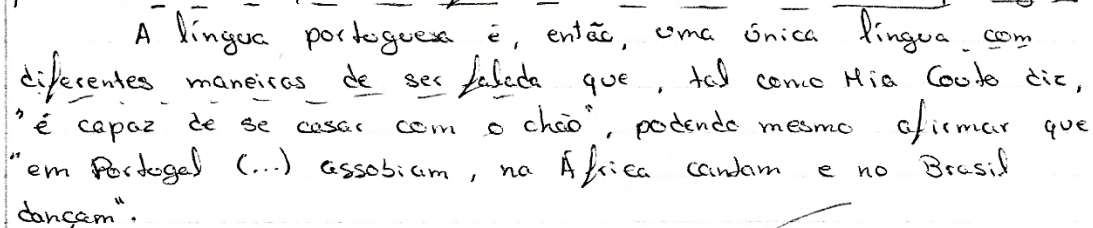 A língua portuguesa é, então, uma única língua com
diferentes maneiras de ser falada que, tal como Mia Couto diz,
"é capaz de se casar com o chão", podendo mesmo afirmar que
"em Portugal (...) assobiam, na África cantam e no Brasil
dançam".